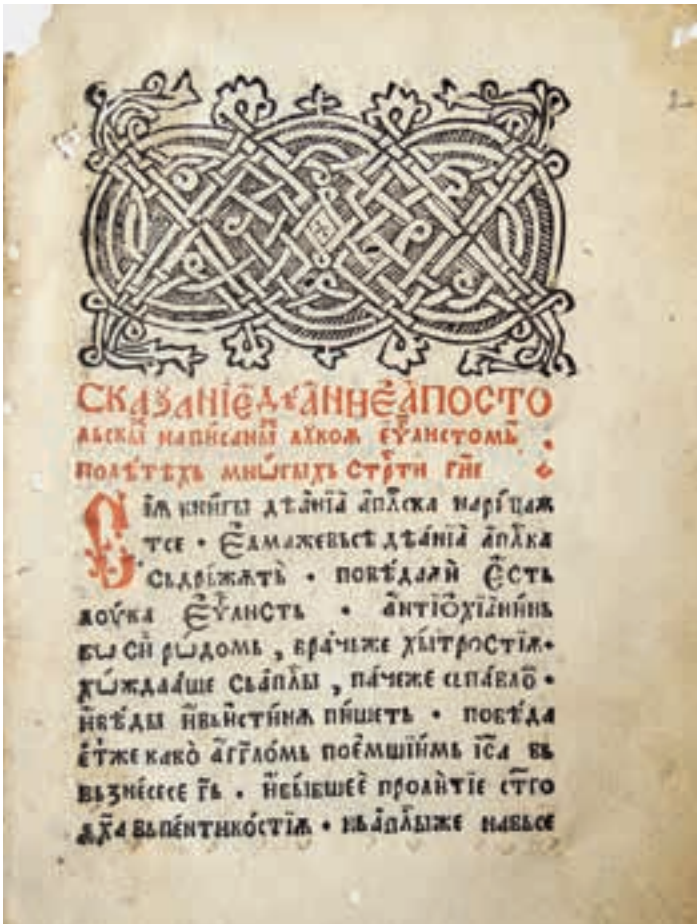 СКАЗАНІЕ ДѢАННЕ АПОСТО
льскы написаны лꙋкоѫ еѵ҃листомъ
по лѣтѣхъ мнѡгыхъ стр҃ти гн҃е
Сїѧ книгы дѣанїа ап҃лска нарицаѫ
тсе · Едмаже вьсѣ дѣанїа ап҃лка
съдрьжѧть · повѣдалй Есть
лоука Еѵ҃листь · антїѻхїанинь
бѡ сй рѡдомь , врачьже хытростїѫ ·
хѡждааше сьап҃лы , пачеже спавло ·
йвѣды йвьйстинѫ пишеть · повѣда
етже како агг҃ломь поемшїимь іс҃а вь
вьзнесесе гь҃ · йбывшее пролитїе ст҃го
дх҃а вьпентикостїѫ · ньап҃лыже навьсе